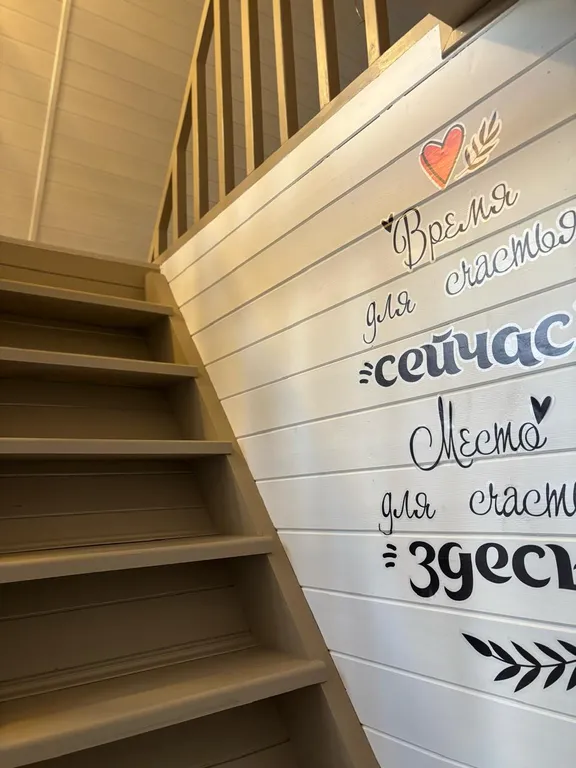 Время
для счастья
сейчас
Место
для счасть
здесь